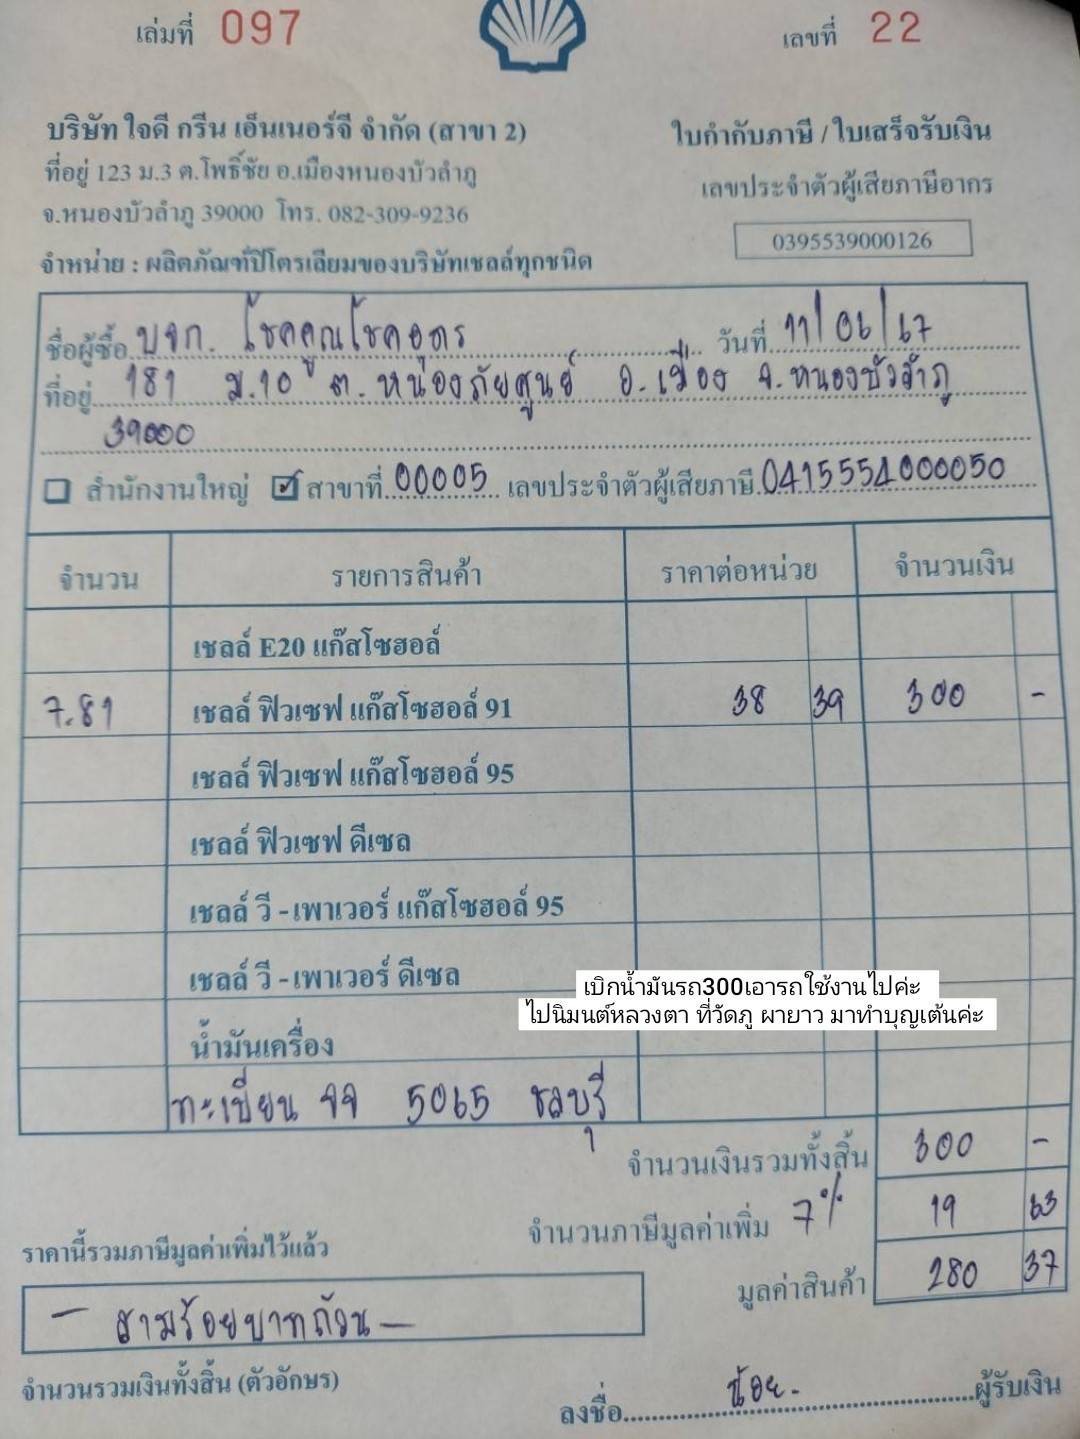 เล่มที่ 097
เลขที่ 22
บริษัท ใจดี กรีน เอ็นเนอร์จี จำกัด (สาขา 2)
ใบกำกับภาษี / ใบเสร็จรับเงิน
ที่อยู่ 123 ม.3 ต.โพธิ์ชัย อ.เมืองหนองบัวลำภู
เลขประจำตัวผู้เสียภาษีอากร
จ.หนองบัวลำภู 39000 โทร. 082-309-9236
0395539000126
จำหน่าย : ผลิตภัณฑ์ปิโตรเลียมของบริษัทเชลล์ทุกชนิด
ชื่อผู้ซื้อ บจก. โชคคูณโชคอุดร วันที่ 11/06/67
ที่อยู่ 181 ม.10 ต.หนองภัยศูนย์ อ.เมือง จ.หนองบัวลำภู
39000
สำนักงานใหญ่ ✓ สาขาที่ 00005 เลขประจำตัวผู้เสียภาษี 0415554000050
จำนวน รายการสินค้า ราคาต่อหน่วย จำนวนเงิน
เชลล์ E20 แก๊สโซฮอล์
7.81 เชลล์ ฟิวเซฟ แก๊สโซฮอล์ 91 38 39 300 -
เชลล์ ฟิวเซฟ แก๊สโซฮอล์ 95
เชลล์ ฟิวเซฟ ดีเซล
เชลล์ วี - เพาเวอร์ แก๊สโซฮอล์ 95
เชลล์ วี - เพาเวอร์ ดีเซล
เบิกน้ำมันรถ300เอารถใช้งานไปค่ะ
ไปนิมนต์หลวงตา ที่วัดภู ผายาว มาทำบุญเต้นค่ะ
น้ำมันเครื่อง
ทะเบียน จจ 5065 ชลบุรี
จำนวนเงินรวมทั้งสิ้น 300 -
จำนวนภาษีมูลค่าเพิ่ม 7% 19 63
ราคานี้รวมภาษีมูลค่าเพิ่มไว้แล้ว
มูลค่าสินค้า 280 37
- สามร้อยบาทถ้วน -
จำนวนรวมเงินทั้งสิ้น (ตัวอักษร)
ลงชื่อ น้อย. ผู้รับเงิน